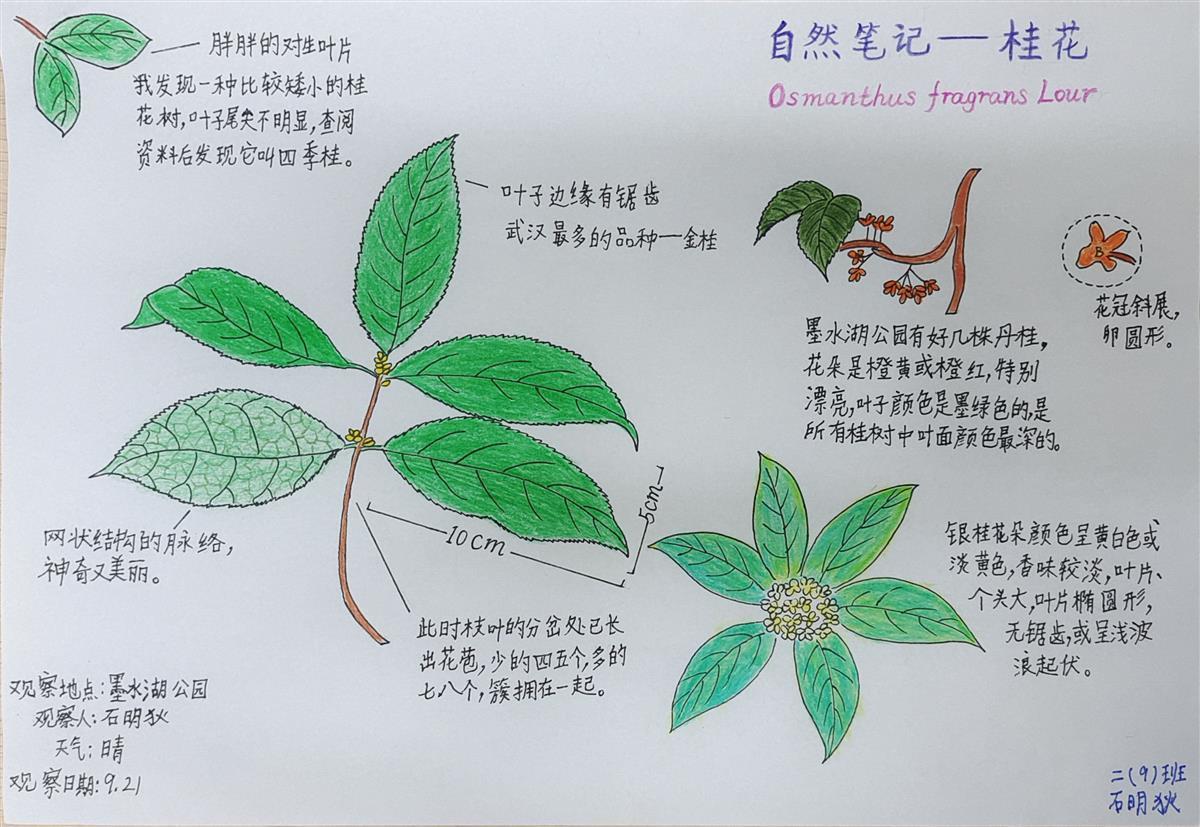 自然笔记—桂花
Osmanthus fragrans Lour
胖胖的对生叶片
我发现一种比较矮小的桂
花树，叶子尾尖不明显，查阅
资料后发现它叫四季桂。
叶子边缘有锯齿
武汉最多的品种—金桂
花冠斜展，
卵圆形。
B
墨水湖公园有好几株丹桂，
花朵是橙黄或橙红，特别
漂亮，叶子颜色是墨绿色的，是
所有桂树中叶面颜色最深的。
网状结构的脉络，
神奇又美丽。
10cm
5cm
此时枝叶的分岔处已长
出花苞，少的四五个，多的
七八个，簇拥在一起。
银桂花朵颜色呈黄白色或
淡黄色，香味较淡，叶片、
个头大，叶片椭圆形，
无锯齿，或呈浅波
浪起伏。
观察地点：墨水湖公园
观察人：石明狄
天气：晴
观察日期：9.21
二（9）班
石明狄